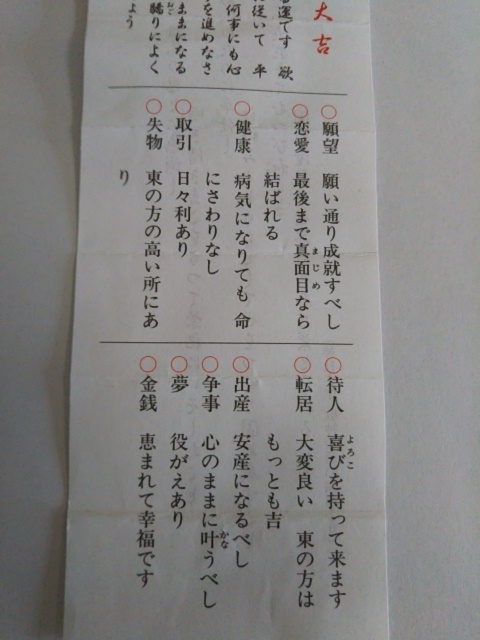 大吉
る運です 欲
に従いて 平
何事にも心
を進めなさ
ままになる
驕りによく
よう
○願望 願い通り成就すべし
○恋愛 最後まで真面目なら
結ばれる
○健康 病気になりても 命
にさわりなし
○取引 日々利あり
○失物 東の方の高い所にあ
り
○待人 喜びを持って来ます
○転居 大変良い 東の方は
もっとも吉
○出産 安産になるべし
○争事 心のままに叶うべし
○夢 役がえあり
○金銭 恵まれて幸福です